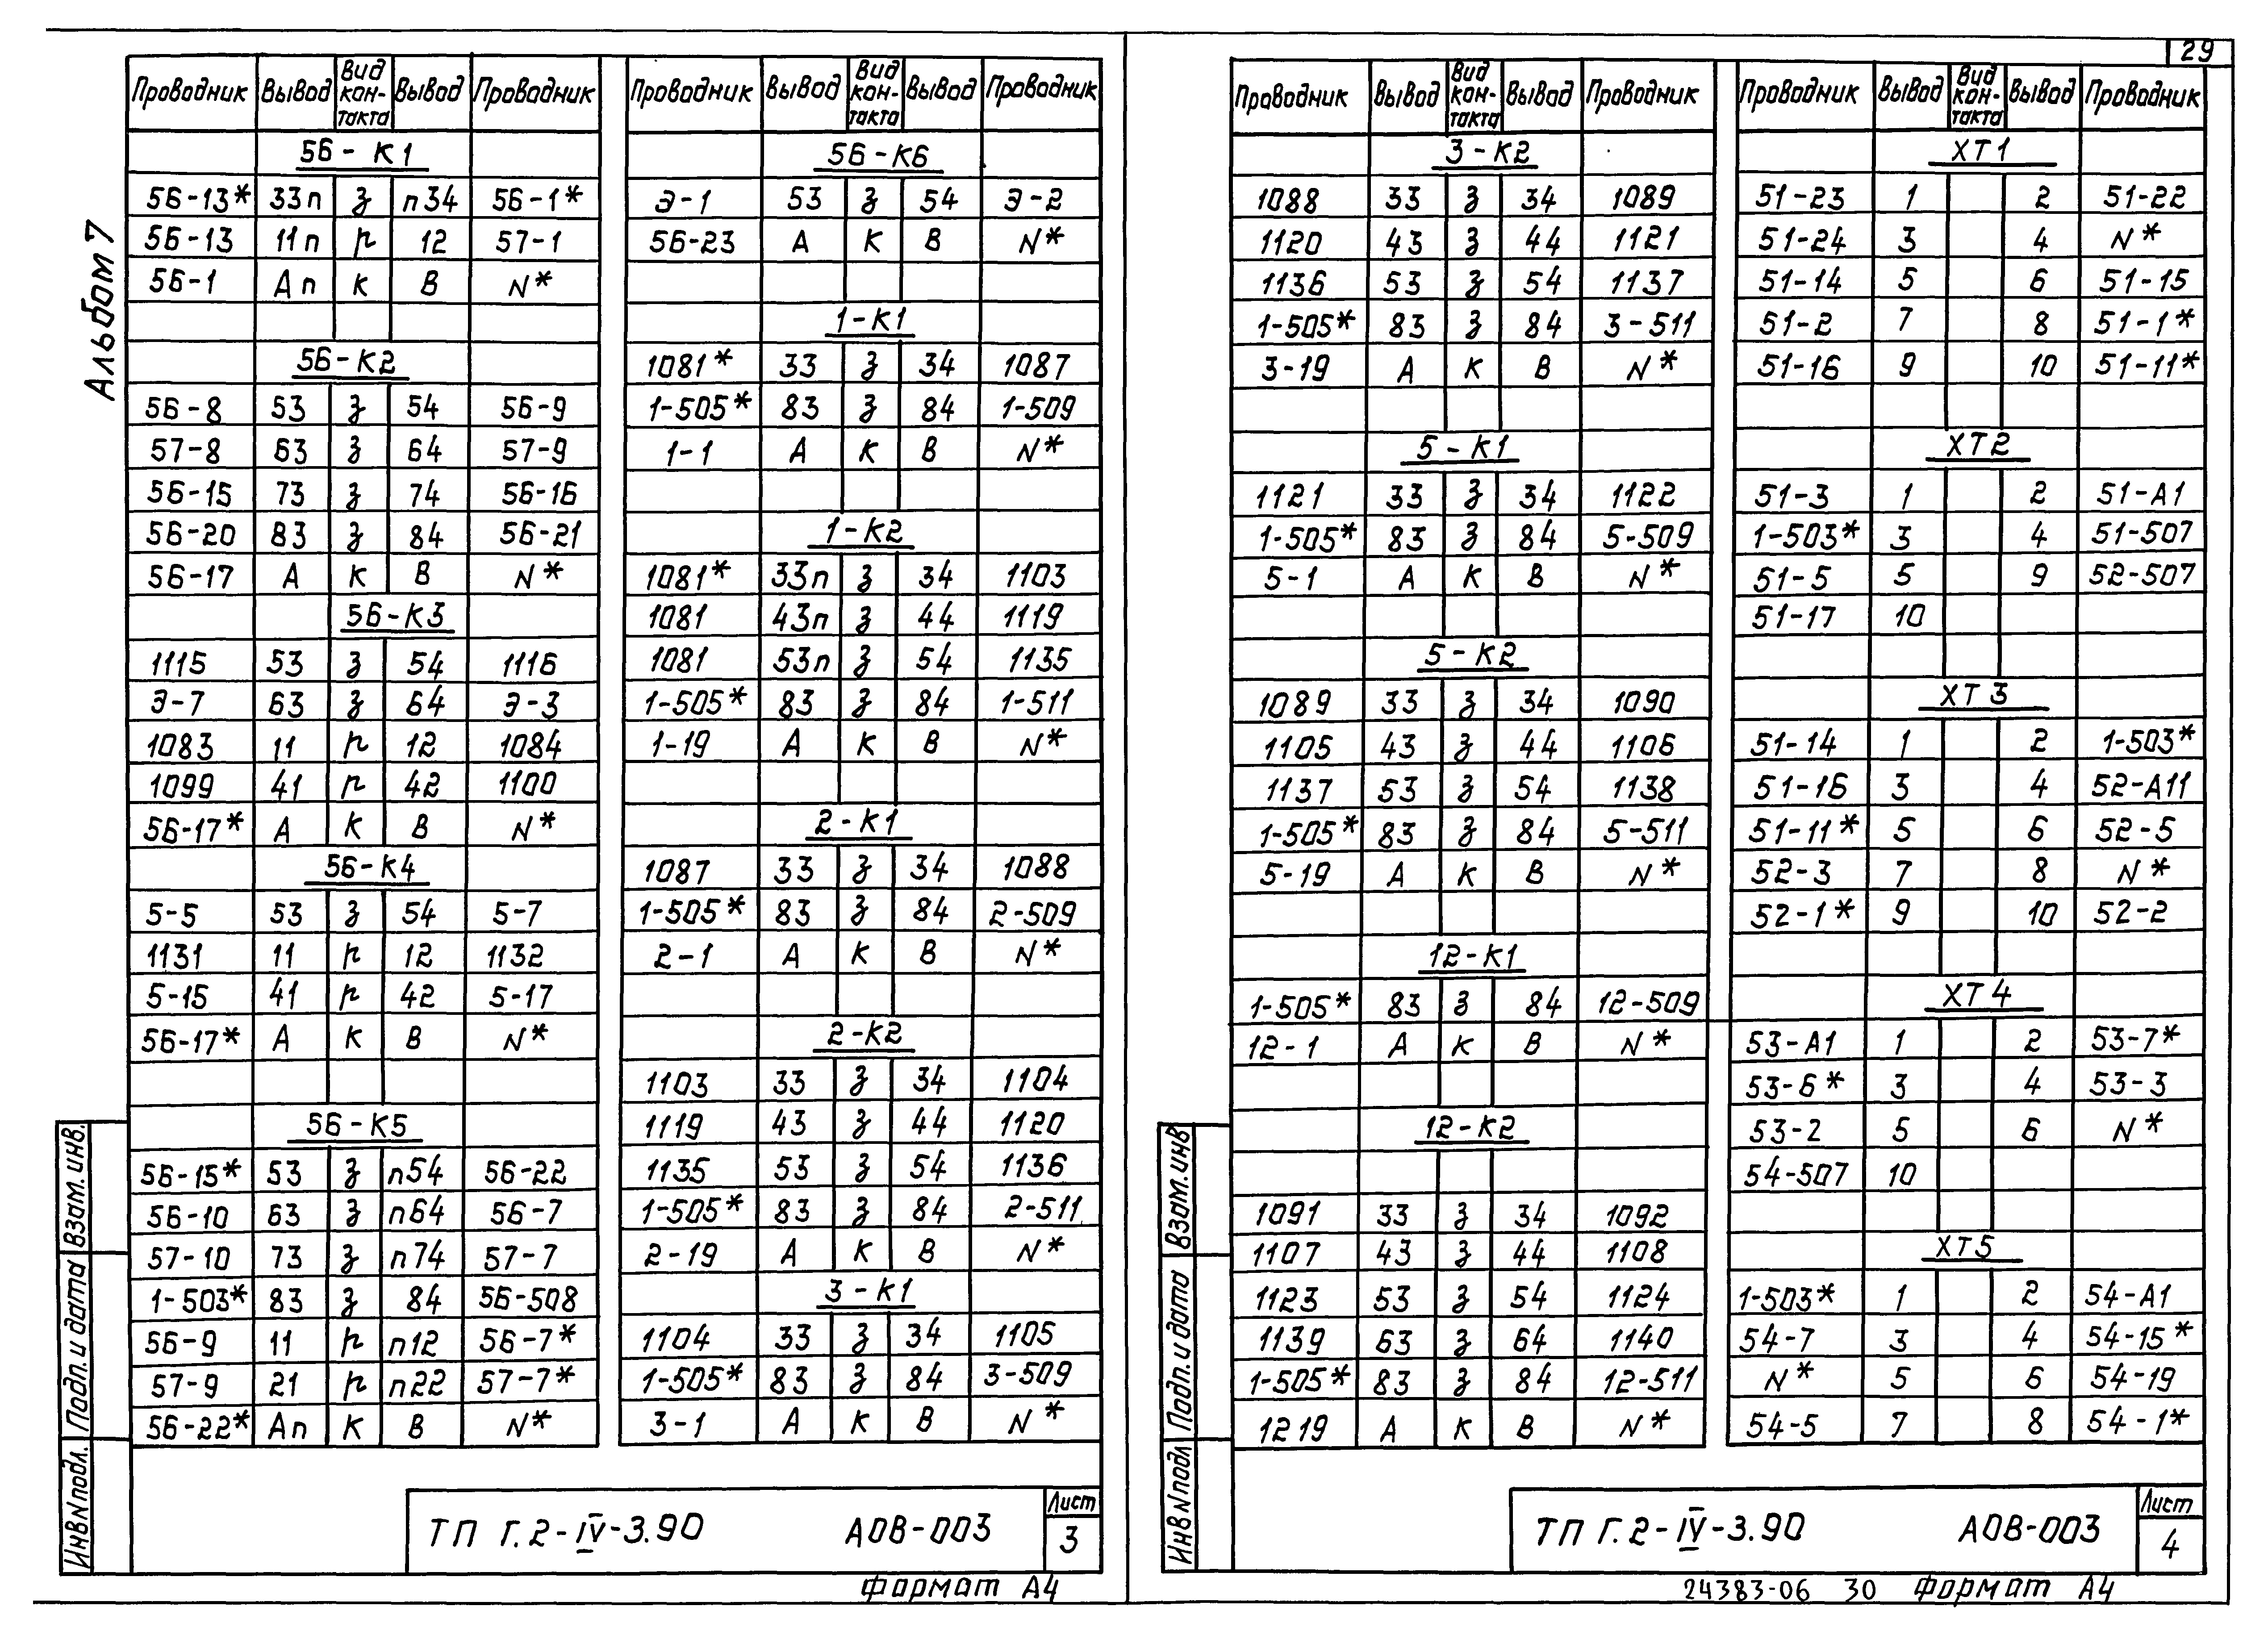 29
Альбом 7
Проводник Вывод Вид контакта Вывод Проводник
56-К1
56-13* 33п з п34 56-1*
56-13 11п р 12 57-1
56-1 Ап К В N*
56-К2
56-8 53 з 54 56-9
57-8 63 з 64 57-9
56-15 73 з 74 56-16
56-20 83 з 84 56-21
56-17 А К В N*
56-К3
1115 53 з 54 1116
Э-7 63 з 64 Э-3
1083 11 р 12 1084
1099 41 р 42 1100
56-17* А К В N*
56-К4
5-5 53 з 54 5-7
1131 11 р 12 1132
5-15 41 р 42 5-17
56-17* А К В N*
56-К5
56-15* 53 з п54 56-22
56-10 63 з п64 56-7
57-10 73 з п74 57-7
1-503* 83 з 84 56-508
56-9 11 р п12 56-7*
57-9 21 р п22 57-7*
56-22* Ап К В N*
Проводник Вывод Вид кон-такта Вывод Проводник
56-К6
Э-1 53 з 54 Э-2
56-23 А К В N*
1-К1
1081* 33 з 34 1087
1-505* 83 з 84 1-509
1-1 А К В N*
1-К2
1081* 33п з 34 1103
1081 43п з 44 1119
1081 53п з 54 1135
1-505* 83 з 84 1-511
1-19 А К В N*
2-К1
1087 33 з 34 1088
1-505* 83 з 84 2-509
2-1 А К В N*
2-К2
1103 33 з 34 1104
1119 43 з 44 1120
1135 53 з 54 1136
1-505* 83 з 84 2-511
2-19 А К В N*
3-К1
1104 33 з 34 1105
1-505* 83 з 84 3-509
3-1 А К В N*
Взам. инв.
Подп. и дата
Инв N подл.
ТП Г.2-IV-3.90 АОВ-003
Лист
3
Формат А4
Проводник Вывод Вид кон-такта Вывод Проводник
3-К2
1088 33 з 34 1089
1120 43 з 44 1121
1136 53 з 54 1137
1-505* 83 з 84 3-511
3-19 А К В N*
5-К1
1121 33 з 34 1122
1-505* 83 з 84 5-509
5-1 А К В N*
5-К2
1089 33 з 34 1090
1105 43 з 44 1106
1137 53 з 54 1138
1-505* 83 з 84 5-511
5-19 А К В N*
12-К1
1-505* 83 з 84 12-509
12-1 А К В N*
12-К2
1091 33 з 34 1092
1107 43 з 44 1108
1123 53 з 54 1124
1139 63 з 64 1140
1-505* 83 з 84 12-511
1219 А К В N*
Проводник Вывод Вид кон-такта Вывод Проводник
ХТ1
51-23 1 2 51-22
51-24 3 4 N*
51-14 5 6 51-15
51-2 7 8 51-1*
51-16 9 10 51-11*
ХТ2
51-3 1 2 51-А1
1-503* 3 4 51-507
51-5 5 9 52-507
51-17 10
ХТ3
51-14 1 2 1-503*
51-16 3 4 52-А11
51-11* 5 6 52-5
52-3 7 8 N*
52-1* 9 10 52-2
ХТ4
53-А1 1 2 53-7*
53-6* 3 4 53-3
53-2 5 6 N*
54-507 10
ХТ5
1-503* 1 2 54-А1
54-7 3 4 54-15*
N* 5 6 54-19
54-5 7 8 54-1*
Взам. инв
Подп. и дата
Инв N подл
ТП Г.2-IV-3.90 АОВ-003
Лист
4
24383-06 30 Формат А4